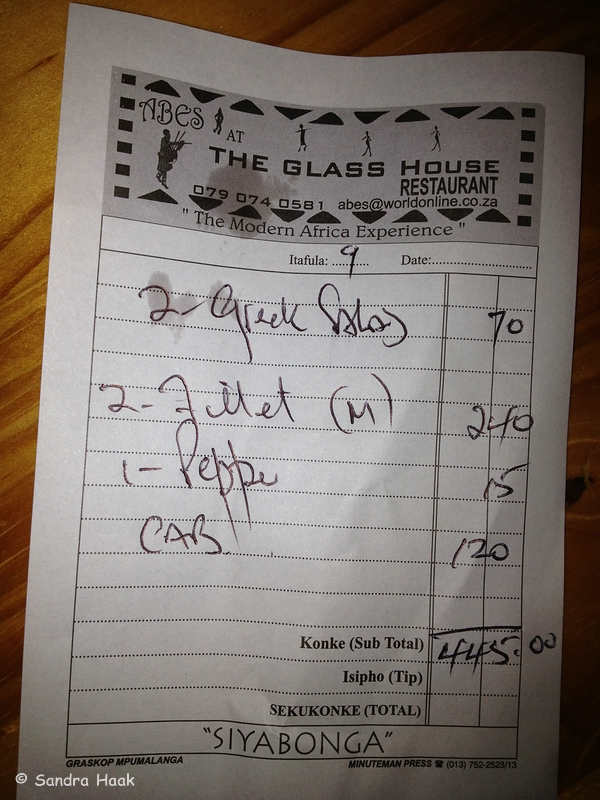 ABES AT
THE GLASS HOUSE
RESTAURANT
079 074 0581 abes@worldonline.co.za
"The Modern Africa Experience"
Itafula: 9 Date:
2 - Greek Salad 70
2 - Fillet (M) 240
1 - Pepper 15
CAB 120
Konke (Sub Total) 445.00
Isipho (Tip)
SEKUKONKE (TOTAL)
"SIYABONGA"
GRASKOP MPUMALANGA MINUTEMAN PRESS ☎ (013) 752-2523/13
© Sandra Haak